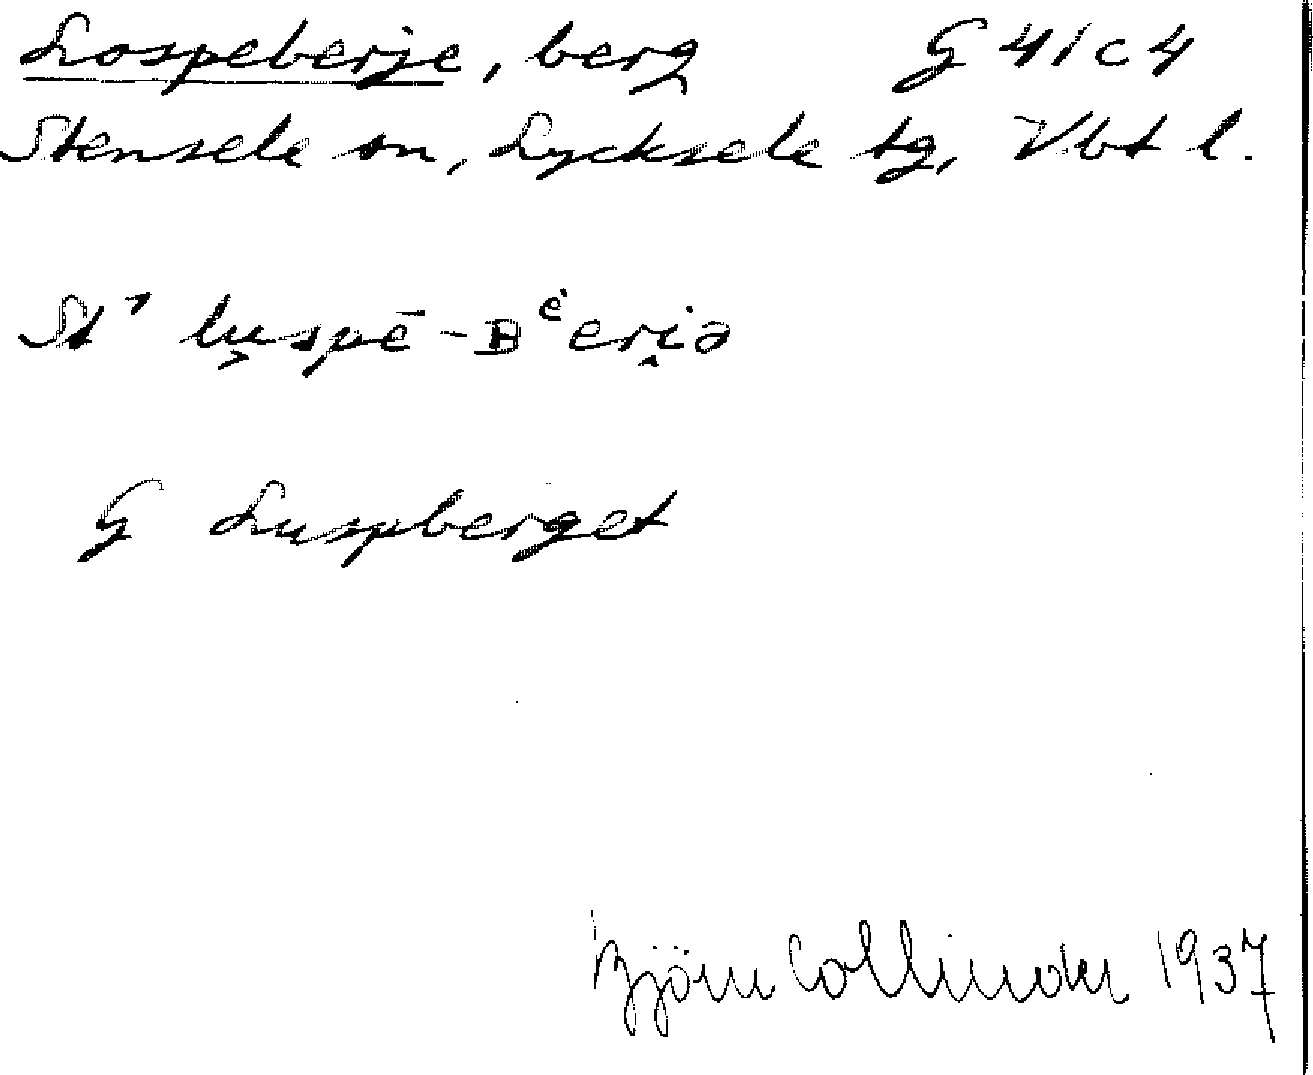 Lospeberje, berg G 41 c 4
Stensele sn, Lycksele tg, Vbt l.
St¹ lu̬spē-Bᵉ̇eri̭ə
G Luspberget
Björn Collinder 1937